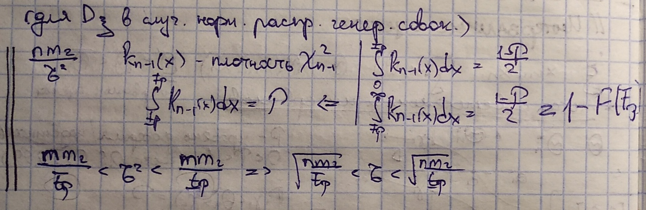 (для D_ξ в случ. норм. распр. генер. совок.)
nm₂/σ² k_{n-1}(x) - плотность χ²_{n-1} | ∫_0^{t_p} k_{n-1}(x)dx = (1-P)/2
∫_{t_p}^{t̄_p} k_{n-1}(x)dx = P ⇐ | ∫_{t̄_p}^∞ k_{n-1}(x)dx = (1-P)/2 = 1 - F(t̄_p)
nm₂/t̄_p < σ² < nm₂/t_p => √(nm₂/t̄_p) < σ < √(nm₂/t_p)